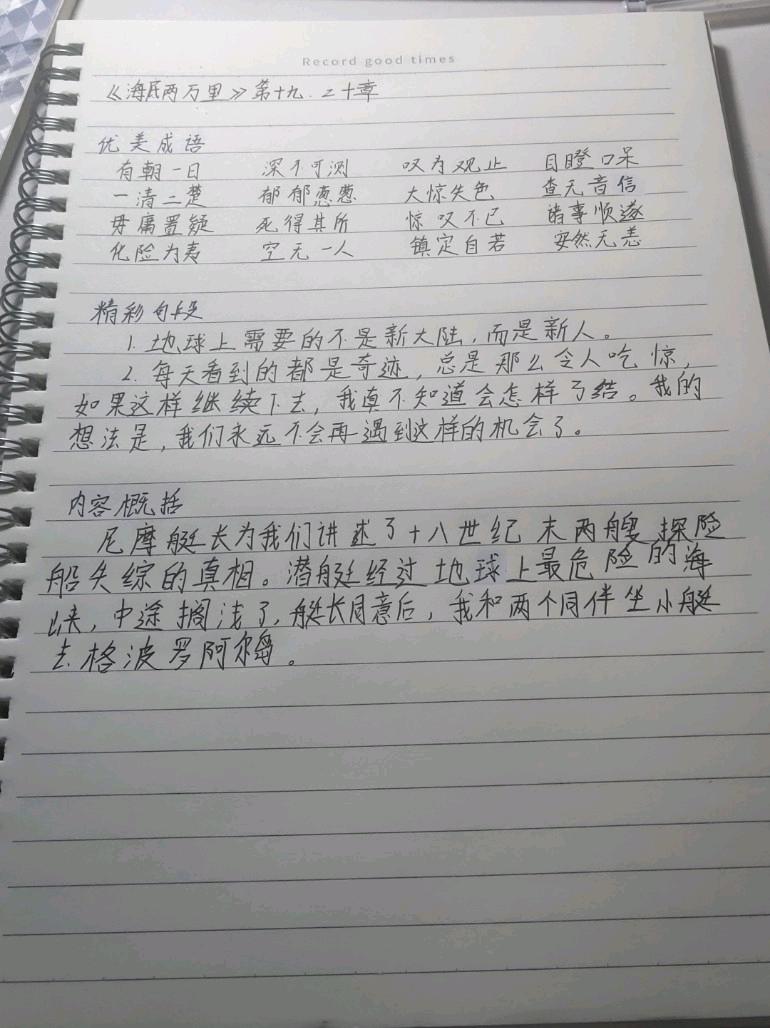 Record good times
《海底两万里》第十九.二十章
优美成语
有朝一日 深不可测 叹为观止 目瞪口呆
一清二楚 郁郁葱葱 大惊失色 查无音信
毋庸置疑 死得其所 惊叹不已 诸事顺遂
化险为夷 空无一人 镇定自若 安然无恙
精彩句段
1. 地球上需要的不是新大陆,而是新人。
2. 每天看到的都是奇迹,总是那么令人吃惊,
如果这样继续下去,我真不知道会怎样了结。我的
想法是,我们永远不会再遇到这样的机会了。
内容概括
尼摩艇长为我们讲述了十八世纪末两艘探险
船失综的真相。潜艇经过地球上最危险的海
峡,中途搁浅了,艇长同意后,我和两个同伴坐小艇
去格波罗阿尔岛。